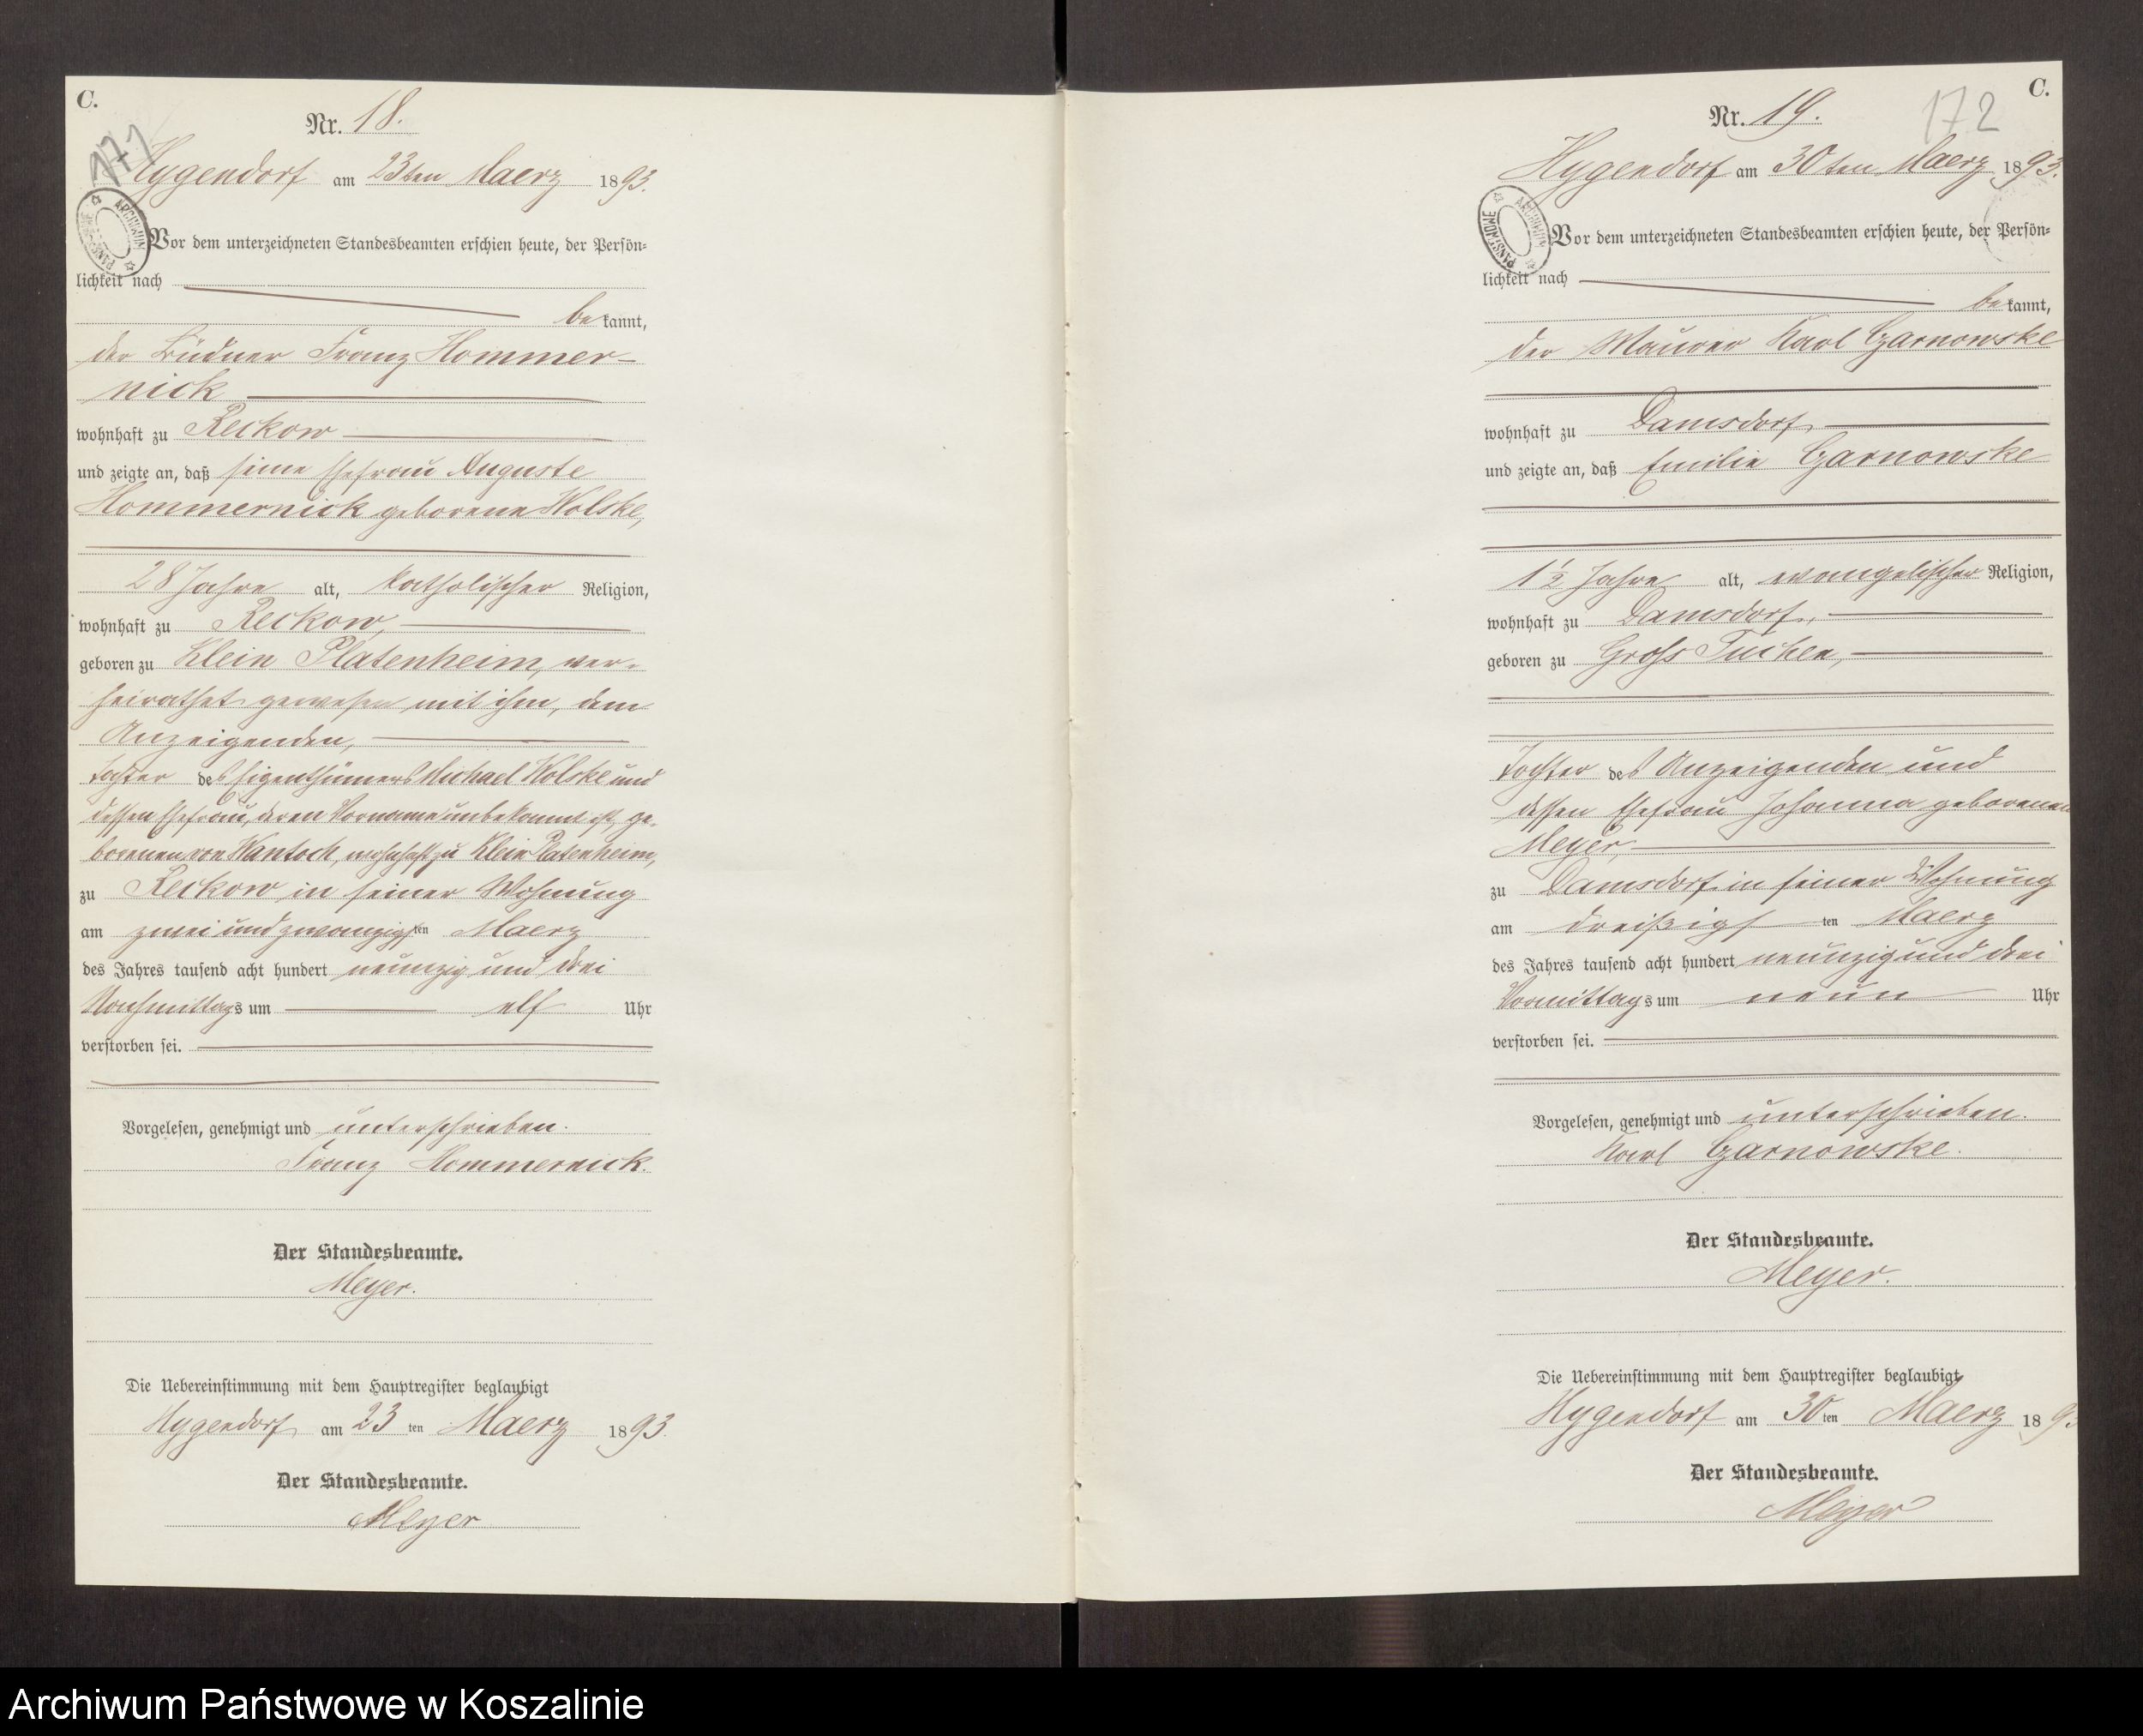 C.
171
Nr. 18.
Hygendorf am 23ten Maerz 1893.
Vor dem unterzeichneten Standesbeamten erschien heute, der Persön-
lichkeit nach
bekannt,
der Büdner Franz Hommer-
nick
wohnhaft zu Reckow
und zeigte an, daß seine Ehefrau Auguste
Hommernick geborene Wolske,
28 Jahre alt, katholischer Religion,
wohnhaft zu Reckow,
geboren zu Klein Platenheim, ver-
heirathet gewesen mit ihm, dem
Anzeigenden,
Tochter des Eigenthümers Michael Wolske und
dessen Ehefrau, deren Vorname unbekannt ist, ge-
borenen von Wantoch, wohnhaft zu Klein Platenheim,
zu Reckow in seiner Wohnung
am zwei und zwanzigsten Maerz
des Jahres tausend acht hundert neunzig und drei
Nachmittags um elf Uhr
verstorben sei.
Vorgelesen, genehmigt und unterschrieben.
Franz Hommernick.
Der Standesbeamte.
Meyer.
Die Uebereinstimmung mit dem Hauptregister beglaubigt
Hygendorf am 23ten Maerz 1893.
Der Standesbeamte.
Meyer
C.
172
Nr. 19.
Hygendorf am 30ten Maerz 1893.
Vor dem unterzeichneten Standesbeamten erschien heute, der Persön-
lichkeit nach
bekannt,
der Maurer Karl Czarnowske
wohnhaft zu Damsdorf,
und zeigte an, daß Emilie Czarnowske
1½ Jahre alt, evangelischer Religion,
wohnhaft zu Damsdorf,
geboren zu Gross Tuchen,
Tochter des Anzeigenden und
dessen Ehefrau Johanna geborenen
Meyer,
zu Damsdorf in seiner Wohnung
am dreißigsten Maerz
des Jahres tausend acht hundert neunzig und drei
Vormittags um neun Uhr
verstorben sei.
Vorgelesen, genehmigt und unterschrieben.
Karl Czarnowske.
Der Standesbeamte.
Meyer.
Die Uebereinstimmung mit dem Hauptregister beglaubigt
Hygendorf am 30ten Maerz 1893
Der Standesbeamte.
Meyer
Archiwum Państwowe w Koszalinie